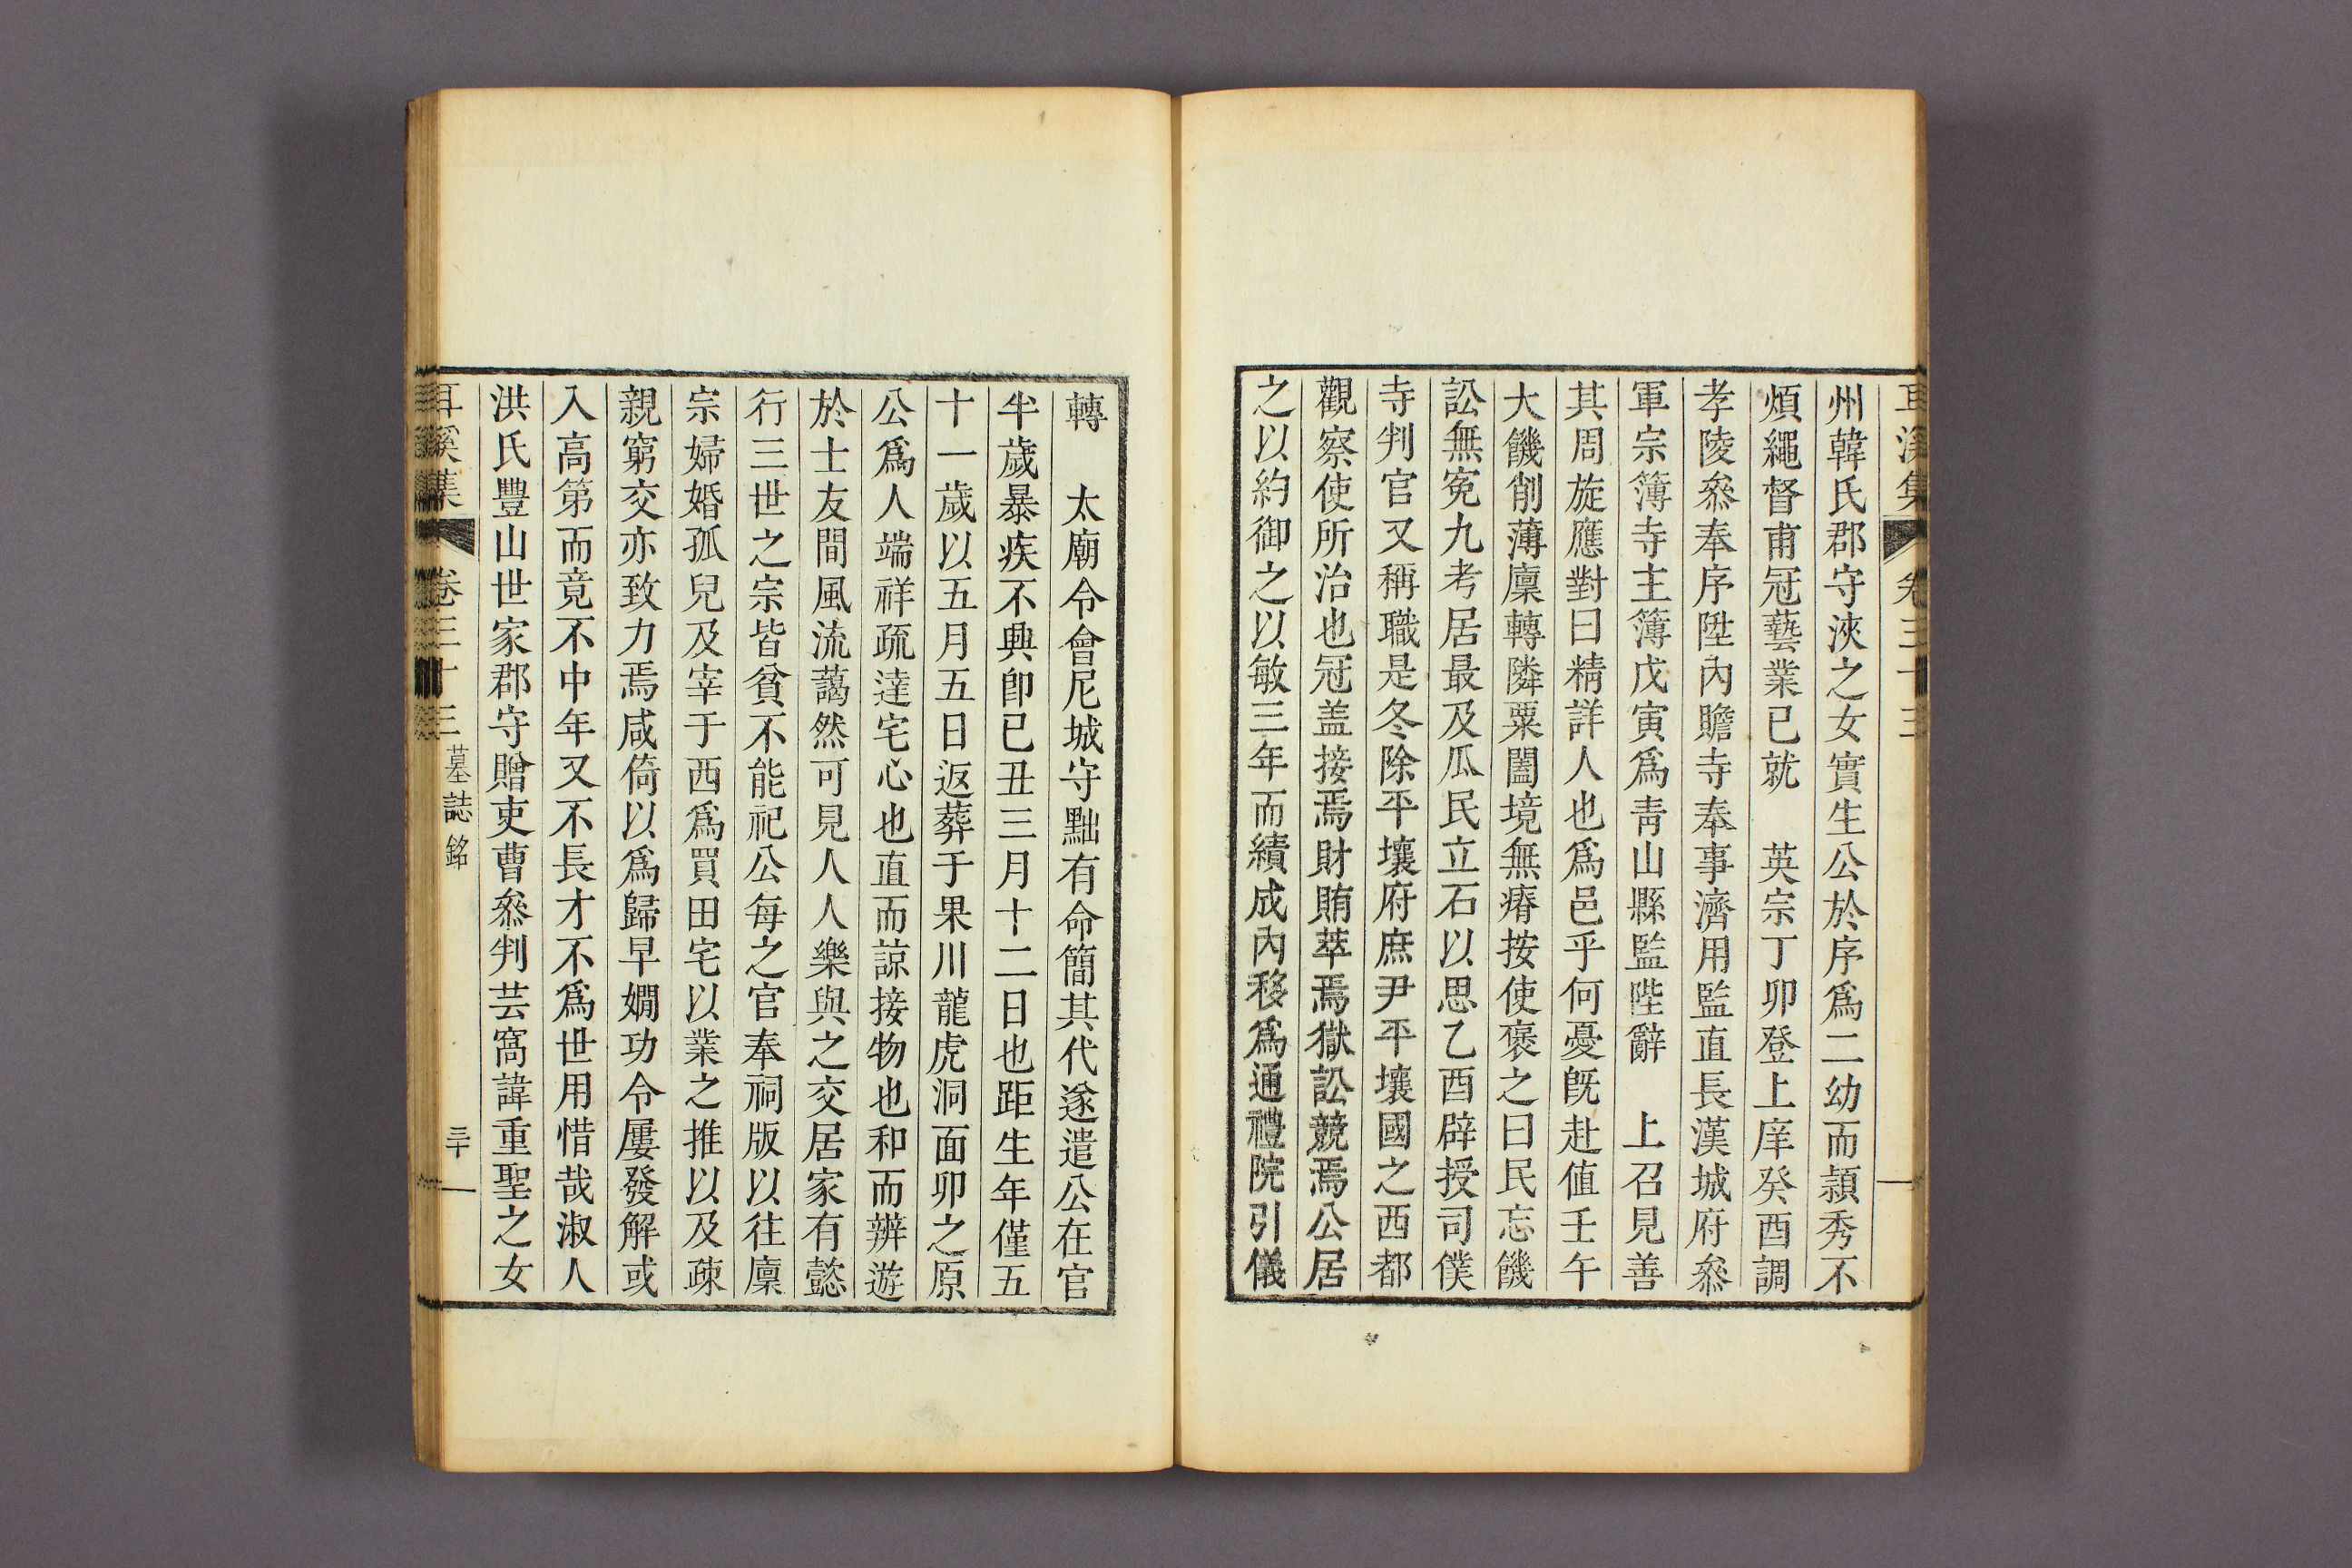 耳溪集 卷三十三
州韓氏郡守浹之女實生公於序爲二幼而穎秀不
煩繩督甫冠藝業已就 英宗丁卯登上庠癸酉調
孝陵叅奉序陞內贍寺奉事濟用監直長漢城府叅
軍宗簿寺主簿戊寅爲靑山縣監陛辭 上召見善
其周旋應對曰精詳人也爲邑乎何憂旣赴值壬午
大饑削薄廩轉隣粟闔境無瘠按使褒之曰民忘饑
訟無寃九考居最及瓜民立石以思乙酉辟授司僕
寺判官又稱職是冬除平壤府庶尹平壤國之西都
觀察使所治也冠盖接焉財賄萃焉獄訟競焉公居
之以約御之以敏三年而績成內移爲通禮院引儀
轉 太廟令會尼城守黜有命簡其代遂遣公在官
半歲暴疾不興卽已丑三月十二日也距生年僅五
十一歲以五月五日返葬于果川龍虎洞面卯之原
公爲人端祥疏達宅心也直而諒接物也和而辨遊
於士友間風流藹然可見人人樂與之交居家有懿
行三世之宗皆貧不能祀公每之官奉祠版以往廩
宗婦婚孤兒及宰于西爲買田宅以業之推以及疎
親窮交亦致力焉咸倚以爲歸早嫺功令屢發解或
入高第而竟不中年又不長才不爲世用惜哉淑人
洪氏豐山世家郡守贈吏曹叅判芸窩諱重聖之女
耳溪集 卷三十三 墓誌銘 三十